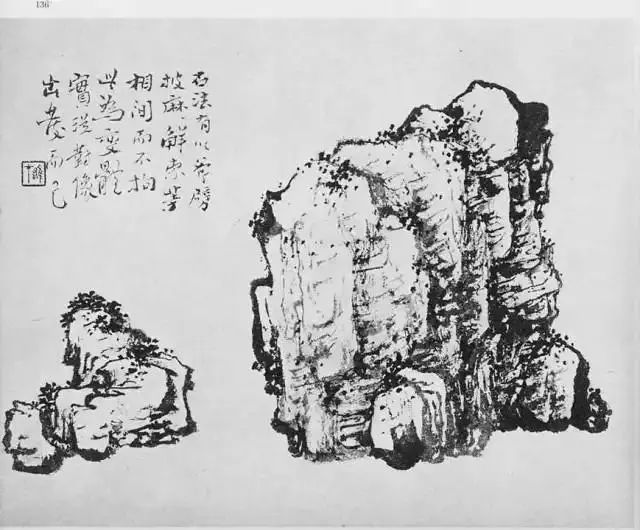 136
石法有以斧劈
披麻、解索等
相间而不拘
此為變體
實從對像
出發而已